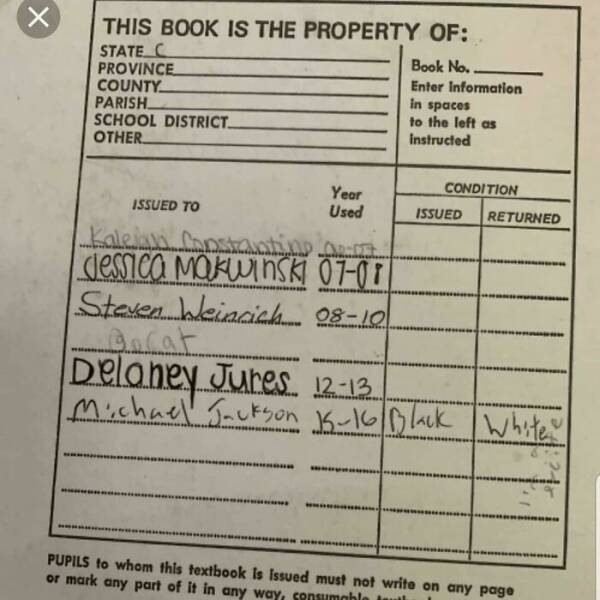 THIS BOOK IS THE PROPERTY OF:
STATE C
PROVINCE
COUNTY
PARISH
SCHOOL DISTRICT
OTHER
Book No.
Enter information
in spaces
to the left as
instructed
ISSUED TO
Year
Used
CONDITION
ISSUED
RETURNED
Kaleigh Constantino 06-07
Jessica Makwinski 07-08
Steven Weinrich 08-10
Delaney Jures 12-13
Michael Jackson 15-16 Black White
PUPILS to whom this textbook is issued must not write on any page
or mark any part of it in any way, consumable